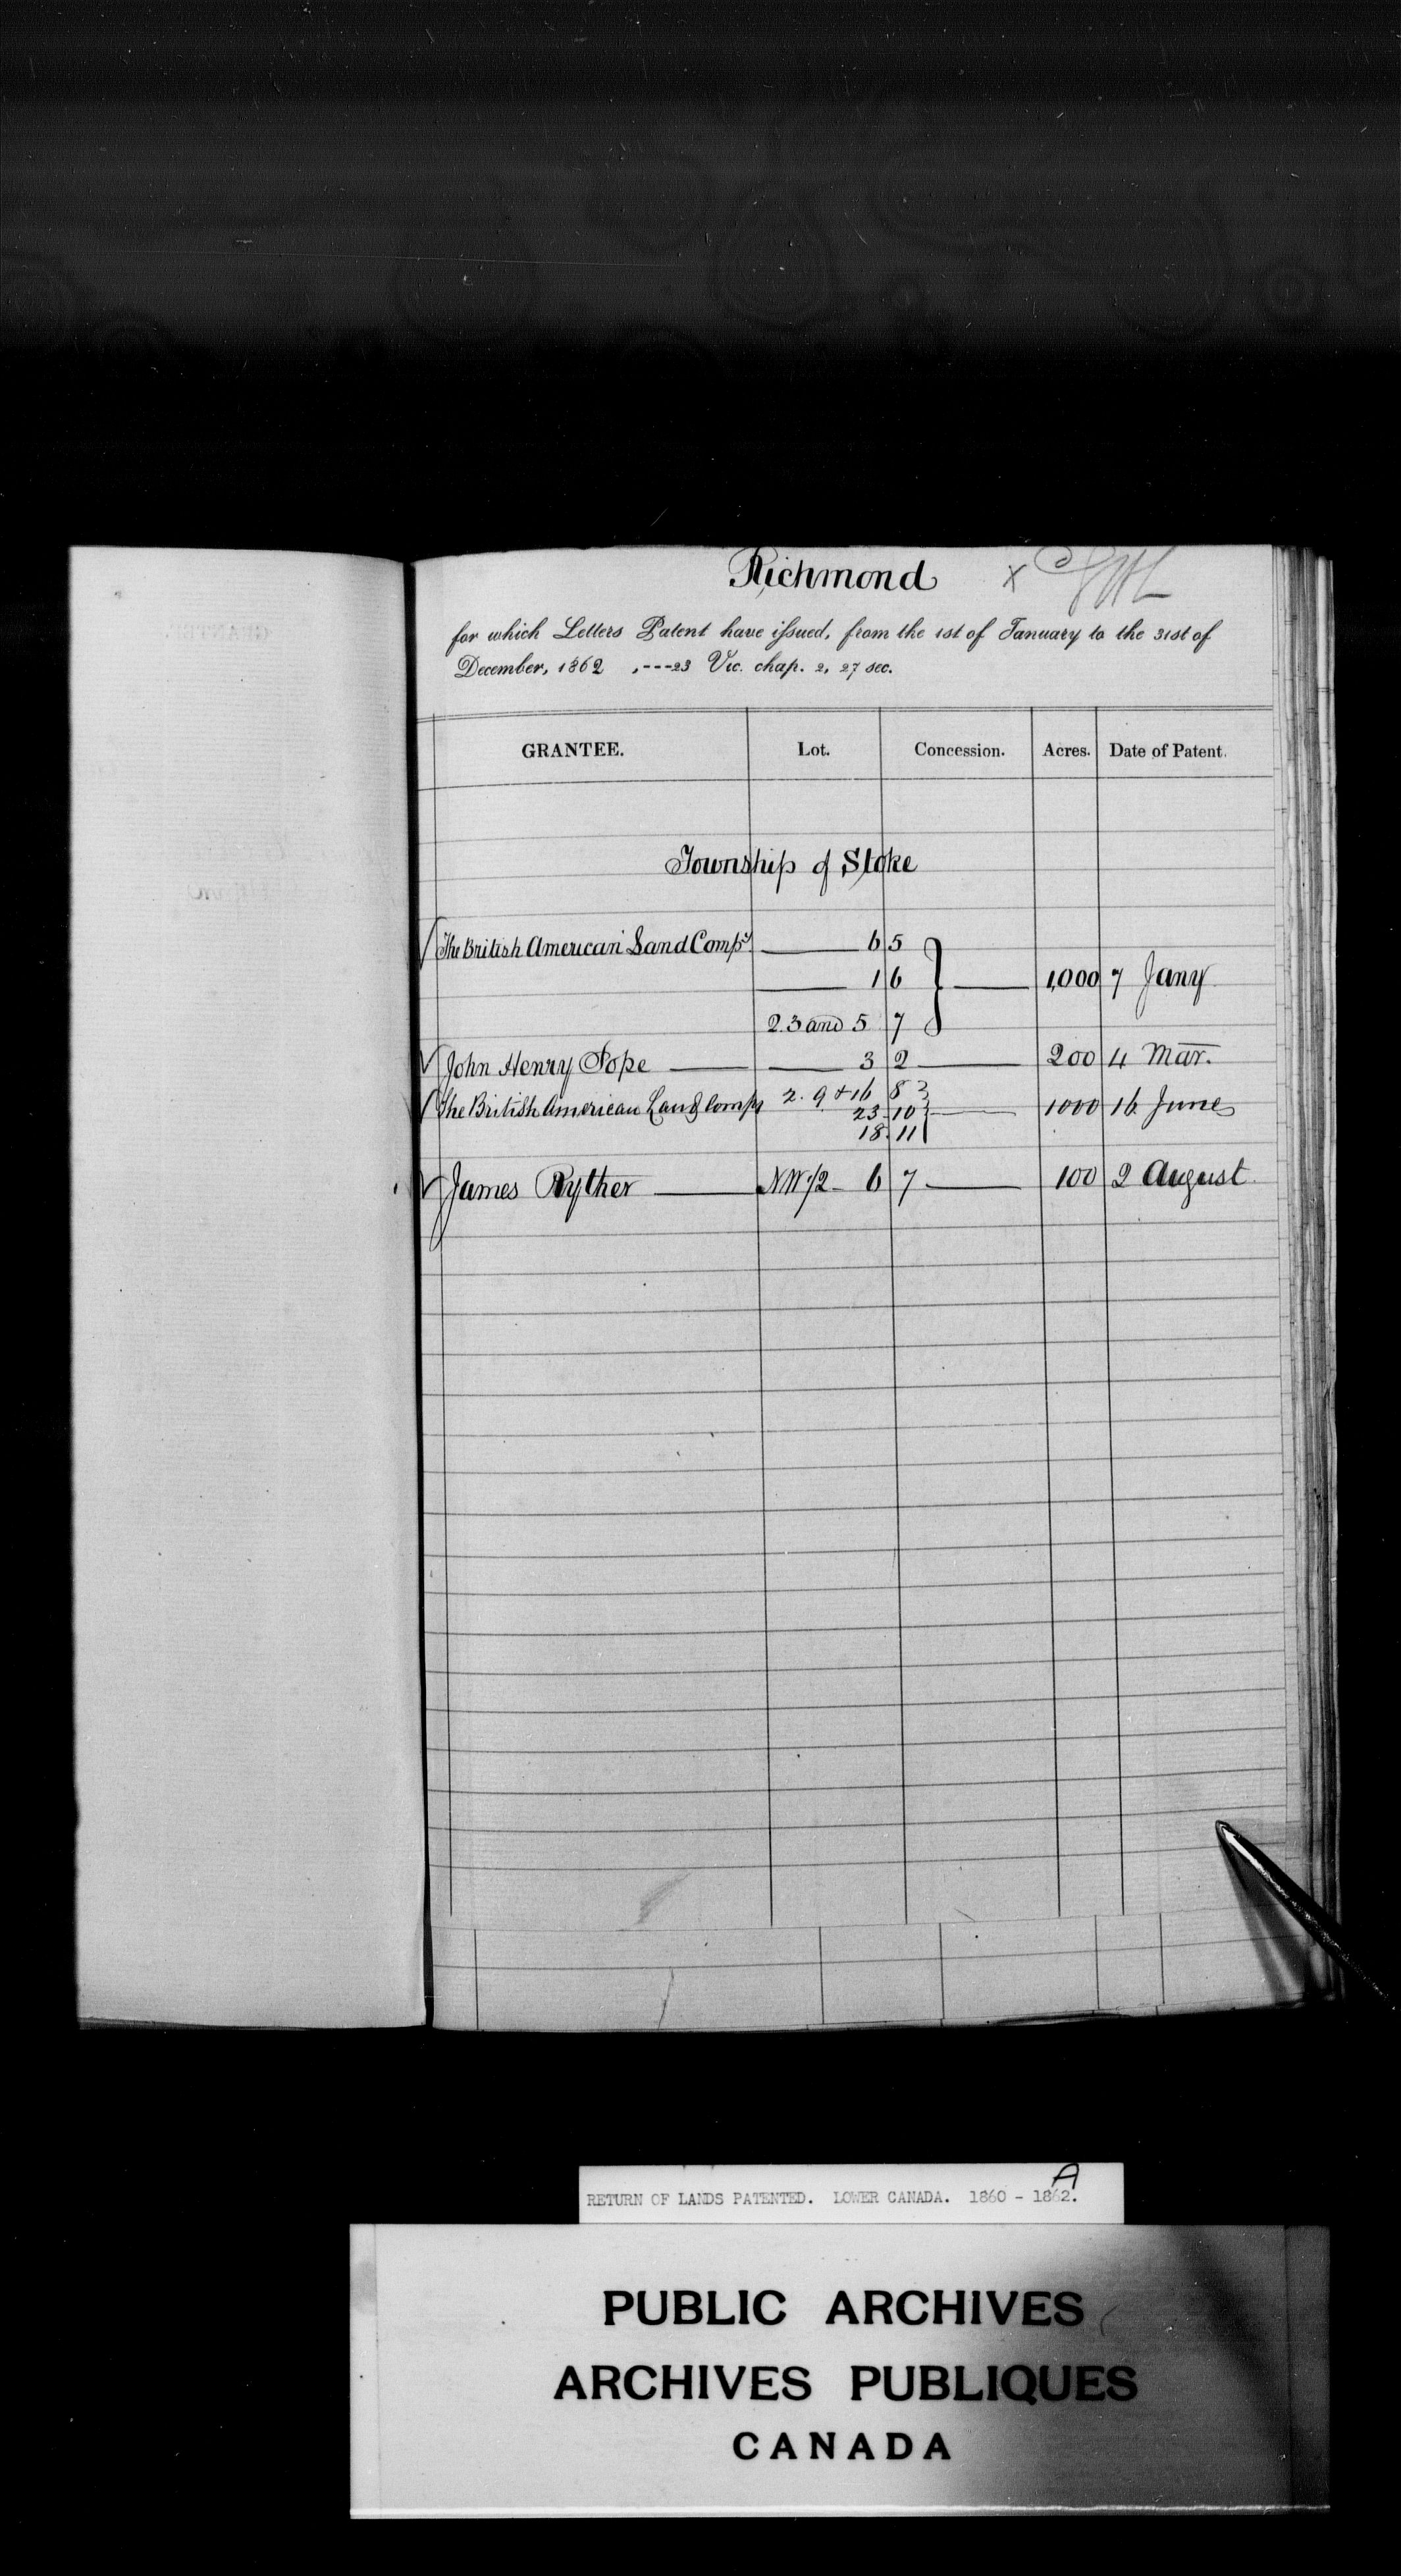 Richmond X
for which Letters Patent have issued, from the 1st of January to the 31st of
December, 1862 ,---23 Vic. chap. 2, 27 sec.
GRANTEE. Lot. Concession. Acres. Date of Patent.
Township of Stoke
The British American Land Compy 6 5
1 6 1,000 7 Jany
2.3 and 5 7
John Henry Pope 3 2 200 4 Mar.
The British American Land Compy 2. 9 + 16 8
23 10 1000 16 June
18 11
James Ryther NW 1/2 6 7 100 2 August
A
RETURN OF LANDS PATENTED. LOWER CANADA. 1860 - 1862.
PUBLIC ARCHIVES
ARCHIVES PUBLIQUES
CANADA